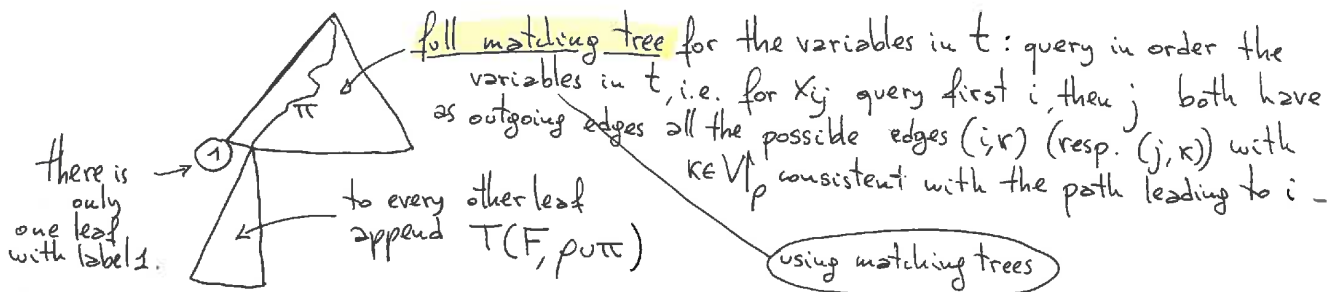 full matching tree for the variables in t : query in order the
variables in t, i.e. for Xij query first i, then j both have
as outgoing edges all the possible edges (i,κ) (resp. (j,κ)) with
κ∈V|ρ consistent with the path leading to i -
π
1
there is
only
one leaf
with label 1.
to every other leaf
append T(F, ρ∪π)
using matching trees